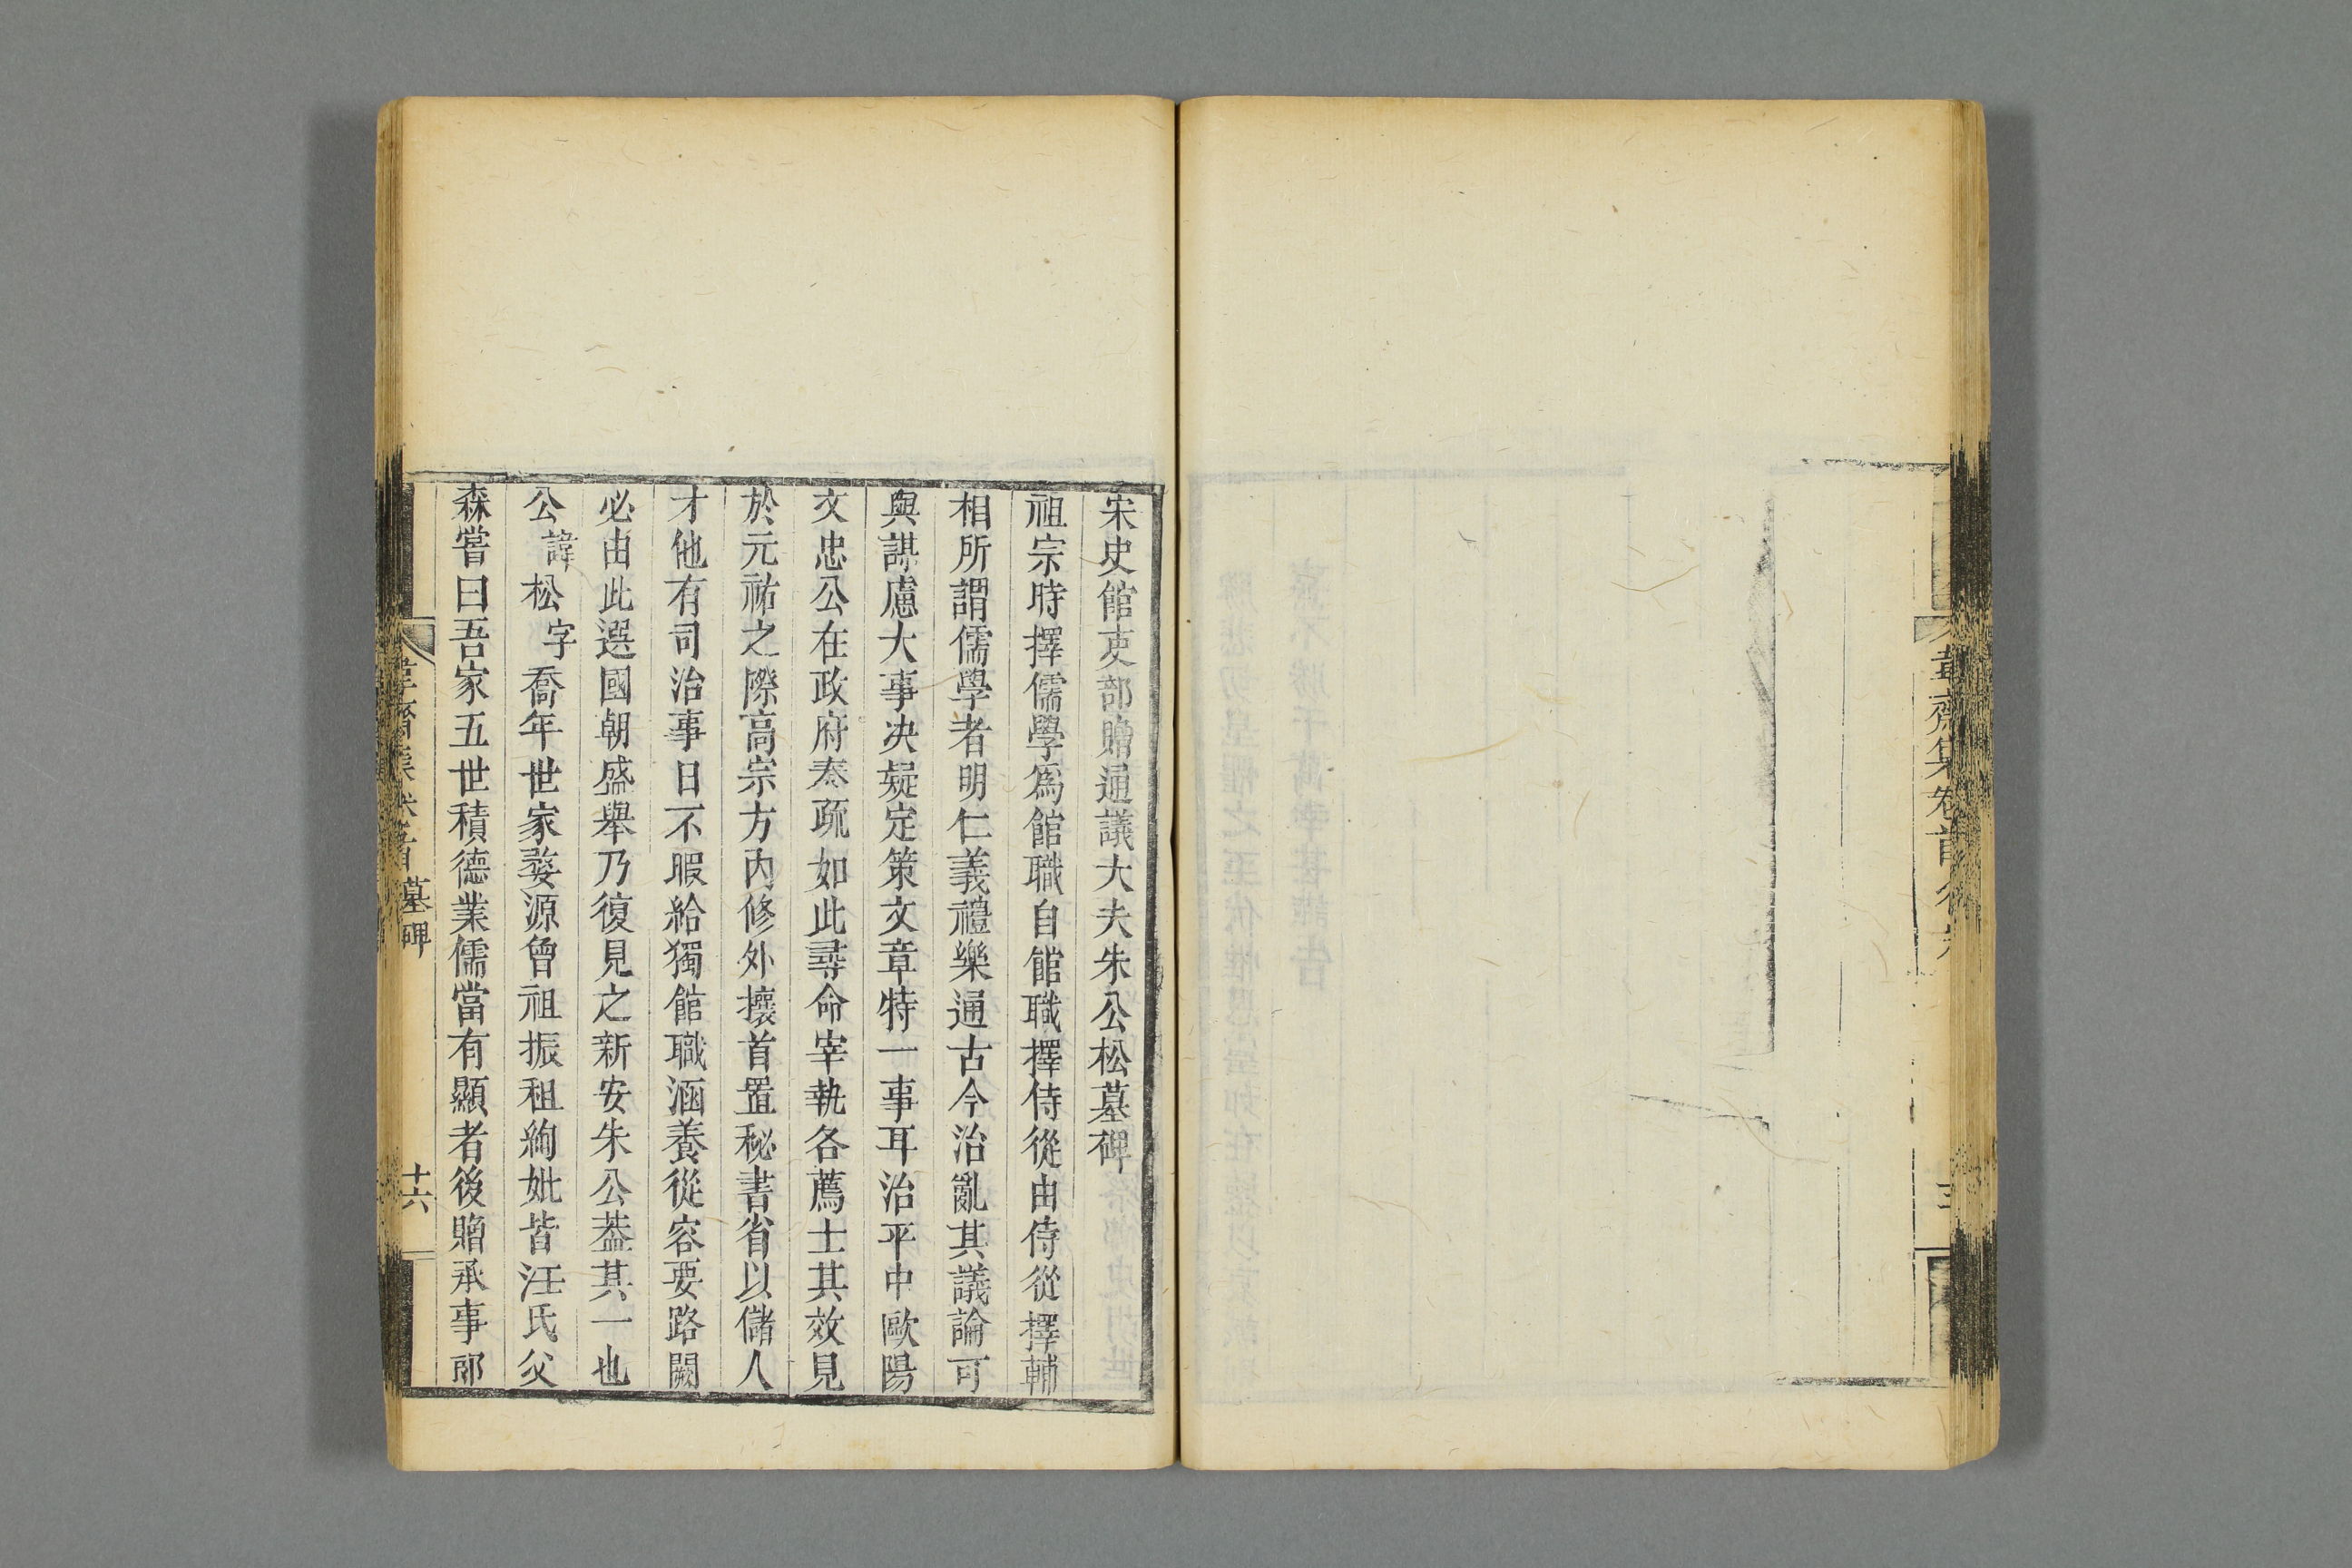 韋齋集卷首
宋史館吏部贈通議大夫朱公松墓碑
祖宗時擇儒學爲館職自館職擇侍從由侍從擇輔
相所謂儒學者明仁義禮樂通古今治亂其議論可
與謀慮大事决疑定策文章特一事耳治平中歐陽
文忠公在政府奏疏如此尋命宰執各薦士其效見
於元祐之際高宗方內修外攘首置秘書省以儲人
才他有司治事日不暇給獨館職涵養從容要路闕
必由此選國朝盛舉乃復見之新安朱公葢其一也
公諱松字喬年世家婺源曾祖振祖絢妣皆汪氏父
森嘗曰吾家五世積德業儒當有顯者後贈承事郎
韋齋集卷首 墓碑 十六